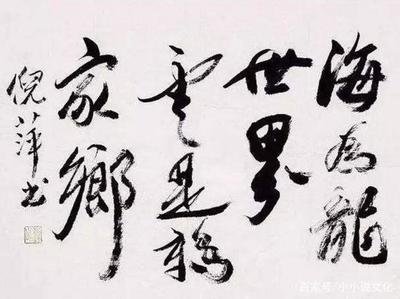 海為龍
世界
雲是鶴
家鄉
倪萍书
百家号/小小说文化